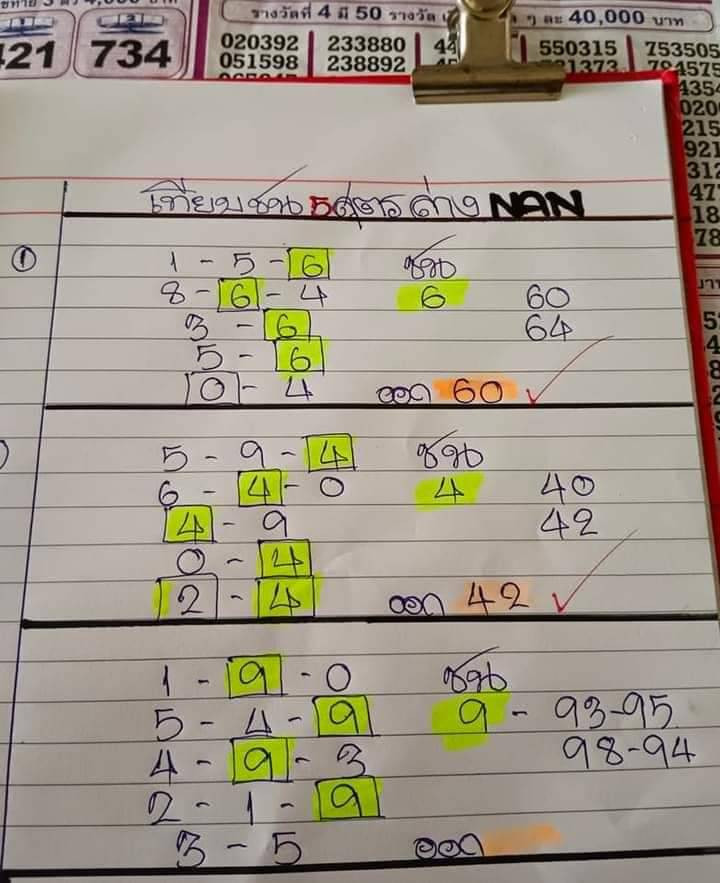 421 734
รางวัลที่ 4 มี 50 รางวัล ๆ ละ 40,000 บาท
020392 233880 44 550315 753505
051598 238892 1373 4575
เทียบชน 5สูตร ต่าง NAN
1 - 5 - 6 ชน
8 - 6 - 4 6 60
3 - 6 64
5 - 6
0 - 4 ออก 60
5 - 9 - 4 ชน
6 - 4 - 0 4 40
4 - 9 42
0 - 4
2 - 4 ออก 42
1 - 9 - 0 ชน
5 - 4 - 9 9 - 93-95
4 - 9 - 3 98-94
2 - 1 - 9
3 - 5 ออก